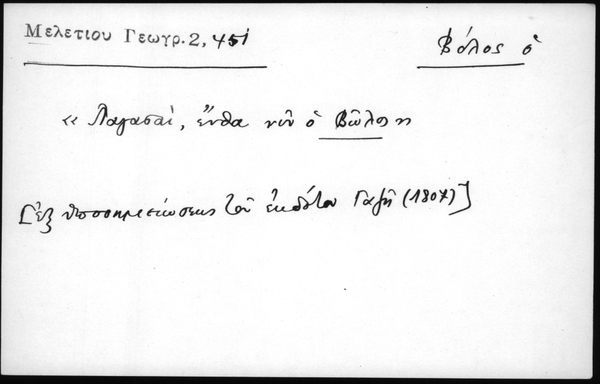 Μελετιου Γεωγρ. 2, 451
Βόλος ὁ
« Παγασαί, ἔνθα νῦν ὁ Βῶλος »
[ἐξ ὑποσημειώσεως τοῦ ἐκδότου Γαζῆ (1807)]